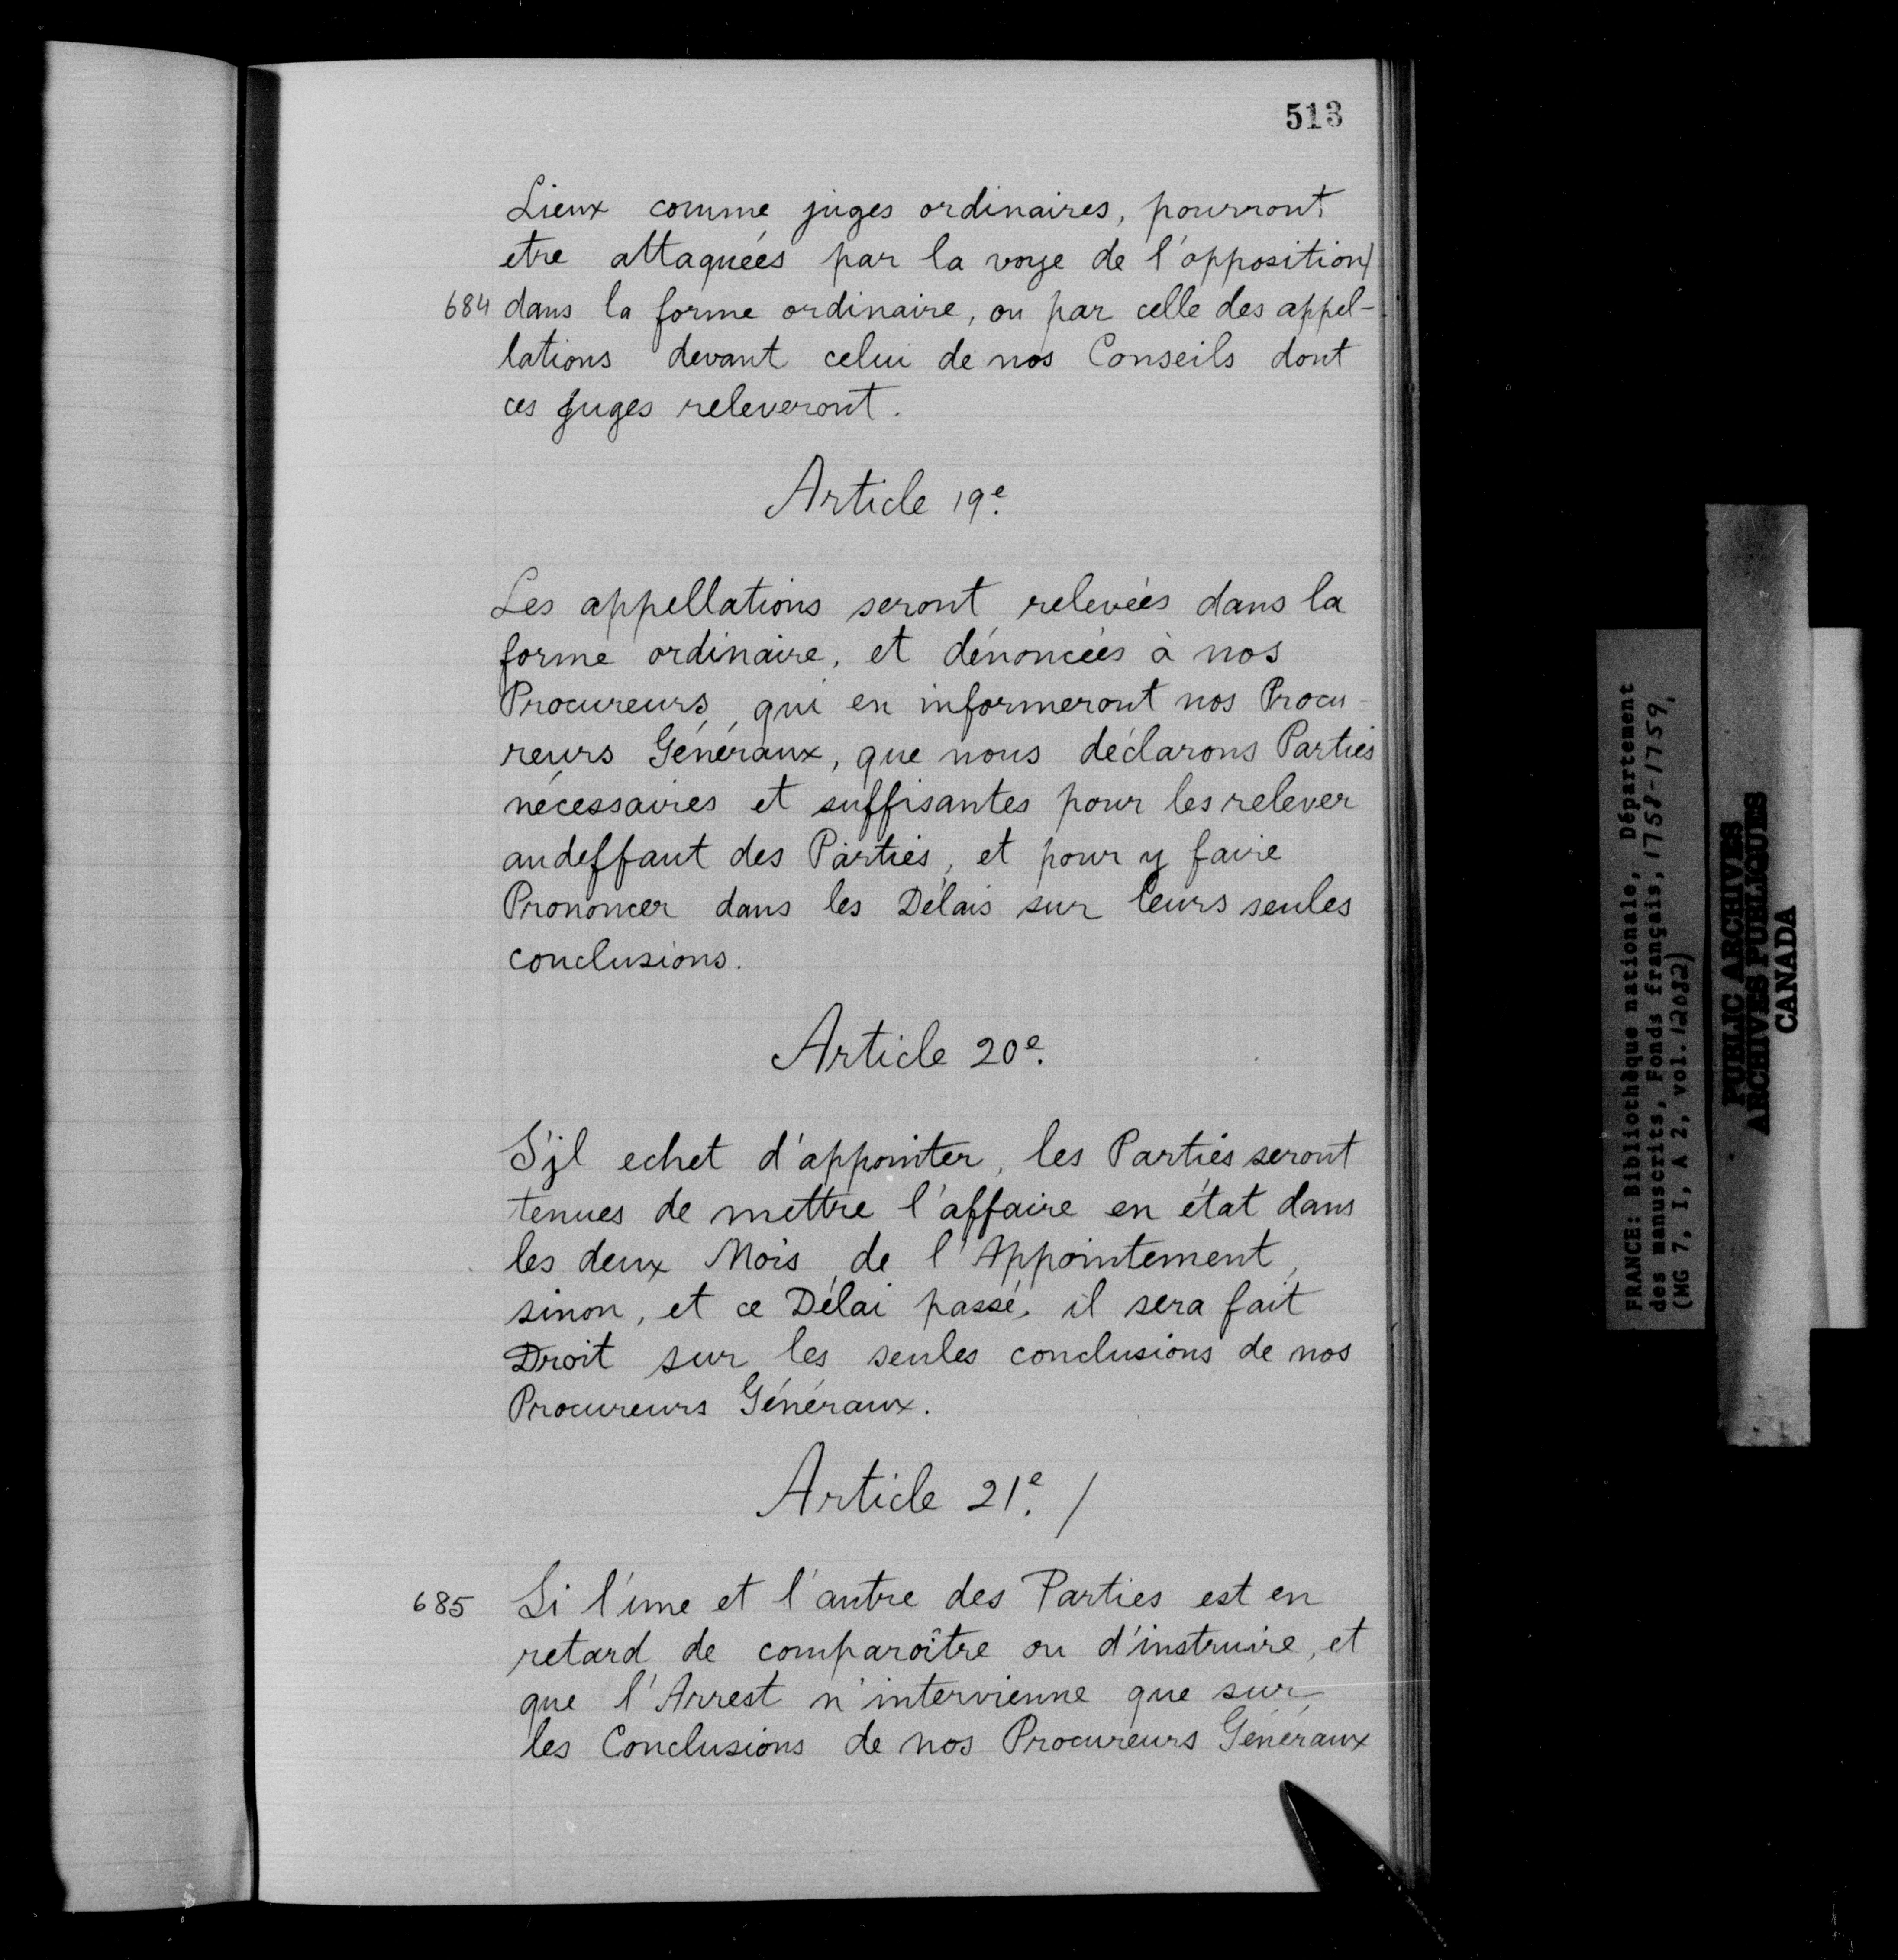 513
Lieux comme juges ordinaires, pourront
etre attaquées par la voye de l'opposition/
684 dans la forme ordinaire, ou par celle des appel-
lations devant celui de nos Conseils dont
ces Juges releveront.
Article 19e.
Les appellations seront relevées dans la
forme ordinaire, et dénoncées à nos
Procureurs, qui en informeront nos Procu-
reurs Généraux, que nous déclarons Parties
nécessaires et suffisantes pour les relever
audeffaut des Parties, et pour y faire
Prononcer dans les Délais sur leurs seules
conclusions.
Article 20e.
S'jl echet d'appointer, les Parties seront
tenues de mettre l'affaire en état dans
les deux Mois de l'Appointement,
sinon, et ce Délai passé, il sera fait
Droit sur les seules conclusions de nos
Procureurs Généraux.
Article 21e. /
685 Si l'une et l'autre des Parties est en
retard de comparoître ou d'instruire, et
que l'Arrest n'intervienne que sur
les Conclusions de nos Procureurs Généraux
FRANCE: Bibliothèque nationale, Département
des manuscrits, Fonds français, 1758-1759,
(MG 7, I, A 2, vol. 12082)
PUBLIC ARCHIVES
ARCHIVES PUBLIQUES
CANADA